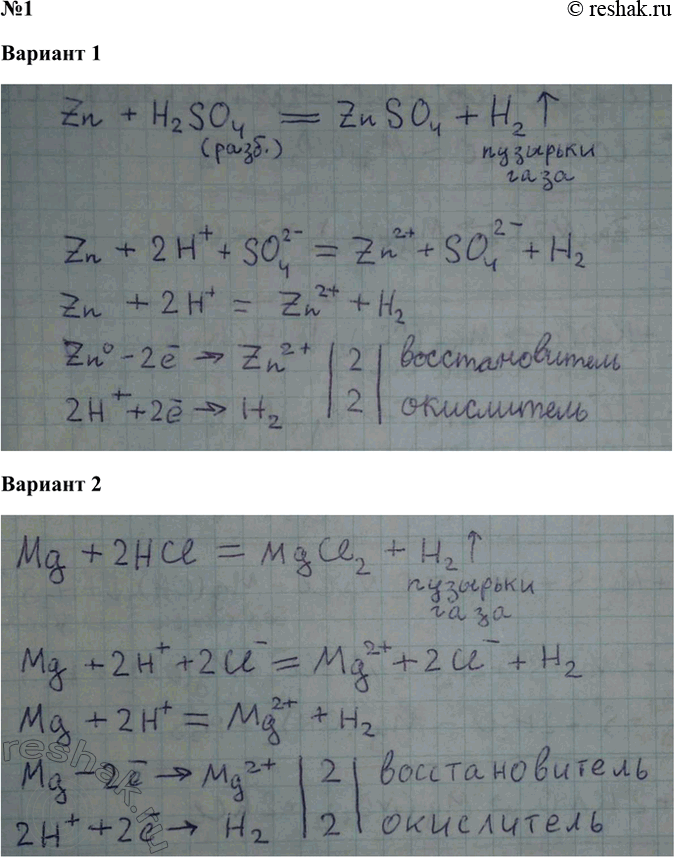 №1
© reshak.ru
Вариант 1
Zn + H₂SO₄ = ZnSO₄ + H₂↑
(разб.) пузырьки
газа
Zn + 2H⁺ + SO₄²⁻ = Zn²⁺ + SO₄²⁻ + H₂
Zn + 2H⁺ = Zn²⁺ + H₂
Zn⁰ - 2ē → Zn²⁺ | 2 | восстановитель
2H⁺ + 2ē → H₂ | 2 | окислитель
Вариант 2
Mg + 2HCl = MgCl₂ + H₂↑
пузырьки
газа
Mg + 2H⁺ + 2Cl⁻ = Mg²⁺ + 2Cl⁻ + H₂
Mg + 2H⁺ = Mg²⁺ + H₂
Mg - 2ē → Mg²⁺ | 2 | восстановитель
2H⁺ + 2ē → H₂ | 2 | окислитель
reshak.ru